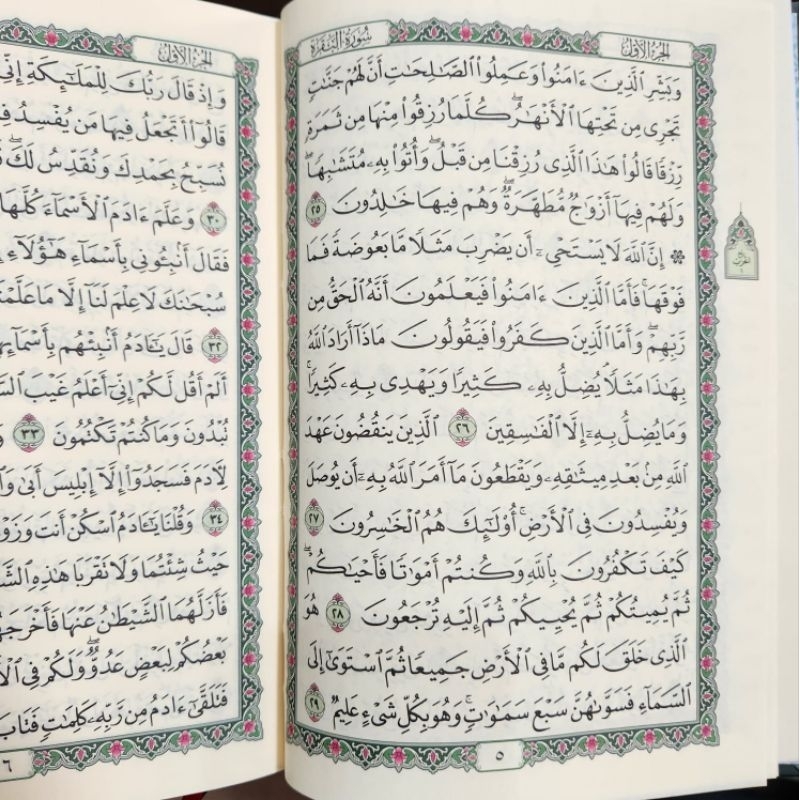 الجزء الأول
سورة البقرة
وَبَشِّرِ ٱلَّذِينَ ءَامَنُواْ وَعَمِلُواْ ٱلصَّٰلِحَٰتِ أَنَّ لَهُمْ جَنَّٰتٍ
تَجْرِي مِن تَحْتِهَا ٱلْأَنْهَٰرُۖ كُلَّمَا رُزِقُواْ مِنْهَا مِن ثَمَرَةٍ
رِّزْقًا قَالُواْ هَٰذَا ٱلَّذِي رُزِقْنَا مِن قَبْلُۖ وَأُتُواْ بِهِۦ مُتَشَٰبِهًاۖ
وَلَهُمْ فِيهَآ أَزْوَٰجٌ مُّطَهَّرَةٌۖ وَهُمْ فِيهَا خَٰلِدُونَ ٢٥
۞ إِنَّ ٱللَّهَ لَا يَسْتَحْيِۦٓ أَن يَضْرِبَ مَثَلًا مَّا بَعُوضَةً فَمَا
فَوْقَهَاۚ فَأَمَّا ٱلَّذِينَ ءَامَنُواْ فَيَعْلَمُونَ أَنَّهُ ٱلْحَقُّ مِن
رَّبِّهِمْۖ وَأَمَّا ٱلَّذِينَ كَفَرُواْ فَيَقُولُونَ مَاذَآ أَرَادَ ٱللَّهُ
بِهَٰذَا مَثَلًاۘ يُضِلُّ بِهِۦ كَثِيرًا وَيَهْدِي بِهِۦ كَثِيرًاۚ
وَمَا يُضِلُّ بِهِۦٓ إِلَّا ٱلْفَٰسِقِينَ ٢٦ ٱلَّذِينَ يَنقُضُونَ عَهْدَ
ٱللَّهِ مِنۢ بَعْدِ مِيثَٰقِهِۦ وَيَقْطَعُونَ مَآ أَمَرَ ٱللَّهُ بِهِۦٓ أَن يُوصَلَ
وَيُفْسِدُونَ فِي ٱلْأَرْضِۚ أُوْلَٰٓئِكَ هُمُ ٱلْخَٰسِرُونَ ٢٧
كَيْفَ تَكْفُرُونَ بِٱللَّهِ وَكُنتُمْ أَمْوَٰتًا فَأَحْيَٰكُمْۖ
ثُمَّ يُمِيتُكُمْ ثُمَّ يُحْيِيكُمْ ثُمَّ إِلَيْهِ تُرْجَعُونَ ٢٨ هُوَ
ٱلَّذِي خَلَقَ لَكُم مَّا فِي ٱلْأَرْضِ جَمِيعًا ثُمَّ ٱسْتَوَىٰٓ إِلَى
ٱلسَّمَآءِ فَسَوَّىٰهُنَّ سَبْعَ سَمَٰوَٰتٍۚ وَهُوَ بِكُلِّ شَيْءٍ عَلِيمٌ ٢٩
٥
الجزء الأول
وَإِذْ قَالَ رَبُّكَ لِلْمَلَٰٓئِكَةِ إِنِّي
قَالُوٓاْ أَتَجْعَلُ فِيهَا مَن يُفْسِدُ
نُسَبِّحُ بِحَمْدِكَ وَنُقَدِّسُ لَكَۖ
٣٠ وَعَلَّمَ ءَادَمَ ٱلْأَسْمَآءَ كُلَّهَا
فَقَالَ أَنۢبِـُٔونِي بِأَسْمَآءِ هَٰٓؤُلَآءِ
سُبْحَٰنَكَ لَا عِلْمَ لَنَآ إِلَّا مَا عَلَّمْتَ
٣٢ قَالَ يَٰٓـَٔادَمُ أَنۢبِئْهُم
أَلَمْ أَقُل لَّكُمْ إِنِّيٓ أَعْلَمُ غَيْبَ
تُبْدُونَ وَمَا كُنتُمْ تَكْتُمُونَ ٣٣
لِأٓدَمَ فَسَجَدُوٓاْ إِلَّآ إِبْلِيسَ أَبَىٰ
٣٤ وَقُلْنَا يَٰٓـَٔادَمُ ٱسْكُنْ أَنتَ
حَيْثُ شِئْتُمَا وَلَا تَقْرَبَا هَٰذِهِ
فَأَزَلَّهُمَا ٱلشَّيْطَٰنُ عَنْهَا
بَعْضُكُمْ لِبَعْضٍ عَدُوٌّۖ وَلَكُمْ فِي
فَتَلَقَّىٰٓ ءَادَمُ مِن رَّبِّهِۦ كَلِمَٰتٍ فَتَابَ
٦